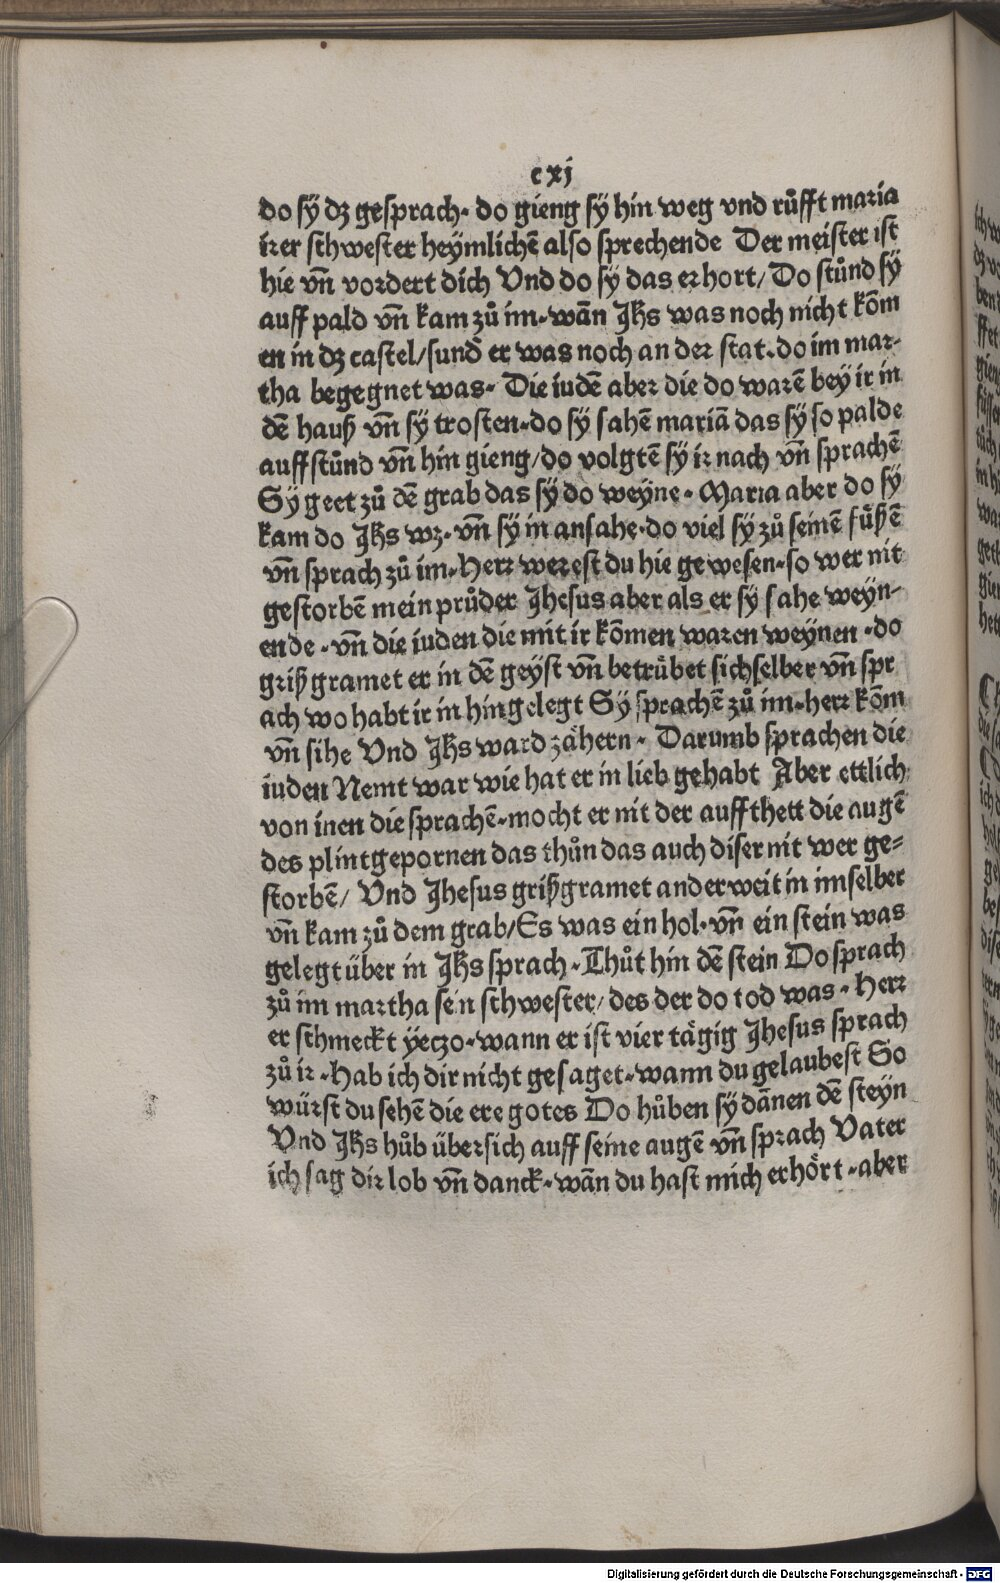 cxj
do sÿ dz gesprach· do gieng sÿ hin weg vnd růfft maria
irer schwester heÿmlichē also sprechende Der meister ist
hie vn̄ vordert dich Vnd do sÿ das erhort/ Do stůnd sÿ
auff pald vn̄ kam zů im·wān Jhs was noch nicht kōm
en in dz castel/sund̄ er was noch an der stat·do im mar-
tha begegnet was· Die iudē aber die do warē beÿ ir in
dē hauß vn̄ sÿ trosten·do sÿ sahē mariā das sÿ so palde
auffstůnd vn̄ hin gieng/do volgtē sÿ ir nach vn̄ sprachē
Sÿ geet zů dē grab das sÿ do weÿne· Maria aber do sÿ
kam do Jhs wz·vn̄ sÿ in ansahe·do viel sÿ zů seinē fůßē
vn̄ sprach zů im·Herr werest du hie gewesen·so wer nit
gestorbē mein průder Jhesus aber als er sÿ sahe weÿn-
ende·vn̄ die iuden die mit ir kōmen waren weÿnen·do
grißgramet er in dē geÿst vn̄ betrůbet sichselber vn̄ spr
ach wo habt ir in hingelegt Sÿ sprachē zů im·herr kōm
vn̄ sihe Vnd Jhs ward zähern· Darumb sprachen die
iuden Nemt war wie hat er in lieb gehabt Aber ettlich
von inen die sprachē·mocht er nit der auffthett die augē
des plintgepornen das thůn das auch diser nit wer ge-
storbē/ Vnd Jhesus grißgramet anderweit in imselber
vn̄ kam zů dem grab/Es was ein hol·vn̄ ein stein was
gelegt über in Jhs sprach·Thůt hin dē stein Do sprach
zů im martha sein schwester/des der do tod was·Herr
er schmeckt ÿeczo·wann er ist vier tägig Jhesus sprach
zů ir·Hab ich dir nicht gesaget·wann du gelaubest So
würst du sehē die ere gotes Do hůben sÿ dānen dē steÿn
Vnd Jhs hůb übersich auff seine augē vn̄ sprach Vater
ich sag dir lob vn̄ danck·wān du hast mich erhört·aber
Digitalisierung gefördert durch die Deutsche Forschungsgemeinschaft - DFG